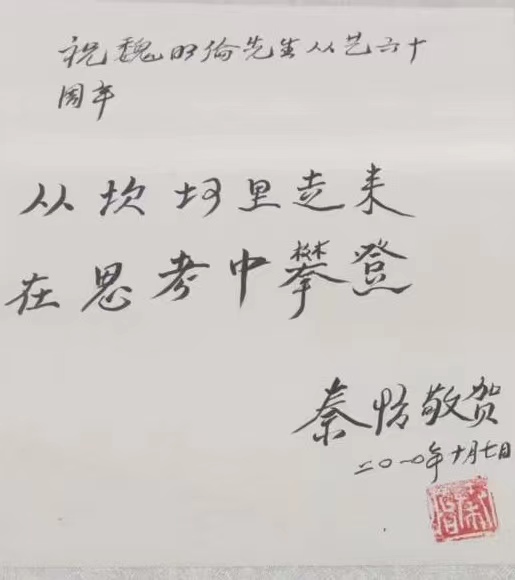 祝魏明伦先生从艺六十
周年
从坎坷里走来
在思考中攀登
秦怡敬贺
二〇一〇年十月七日